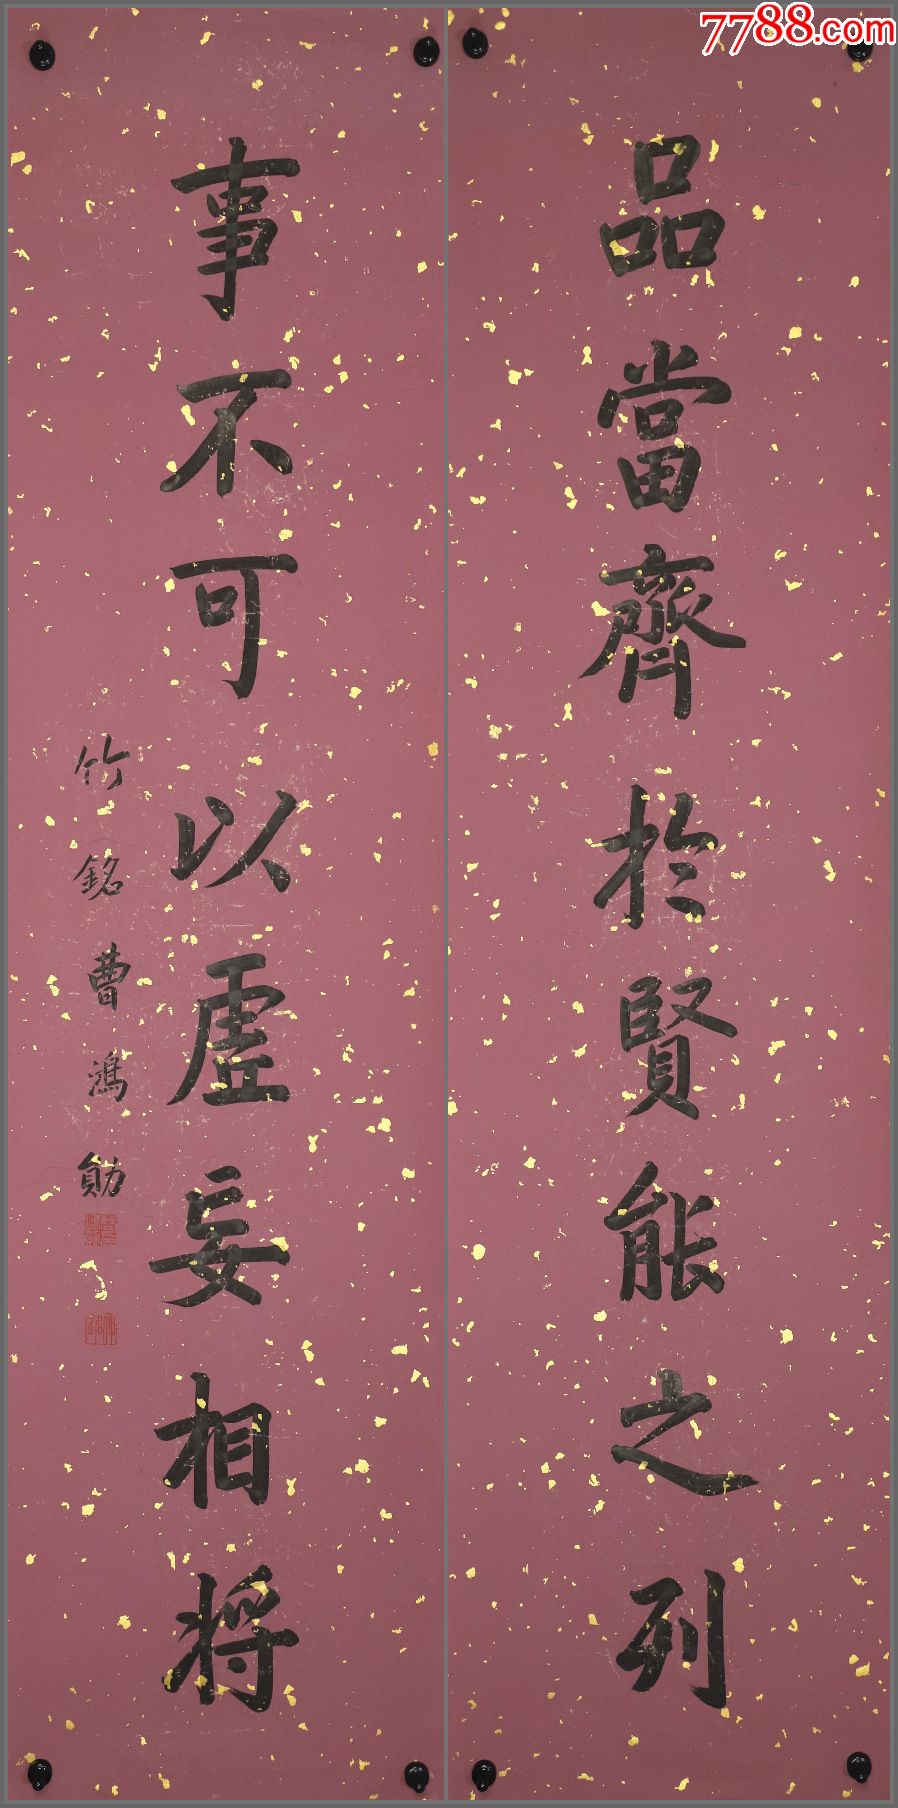 7788.com
品當齊於賢能之列
事不可以虛妄相將
竹銘曹鴻勛